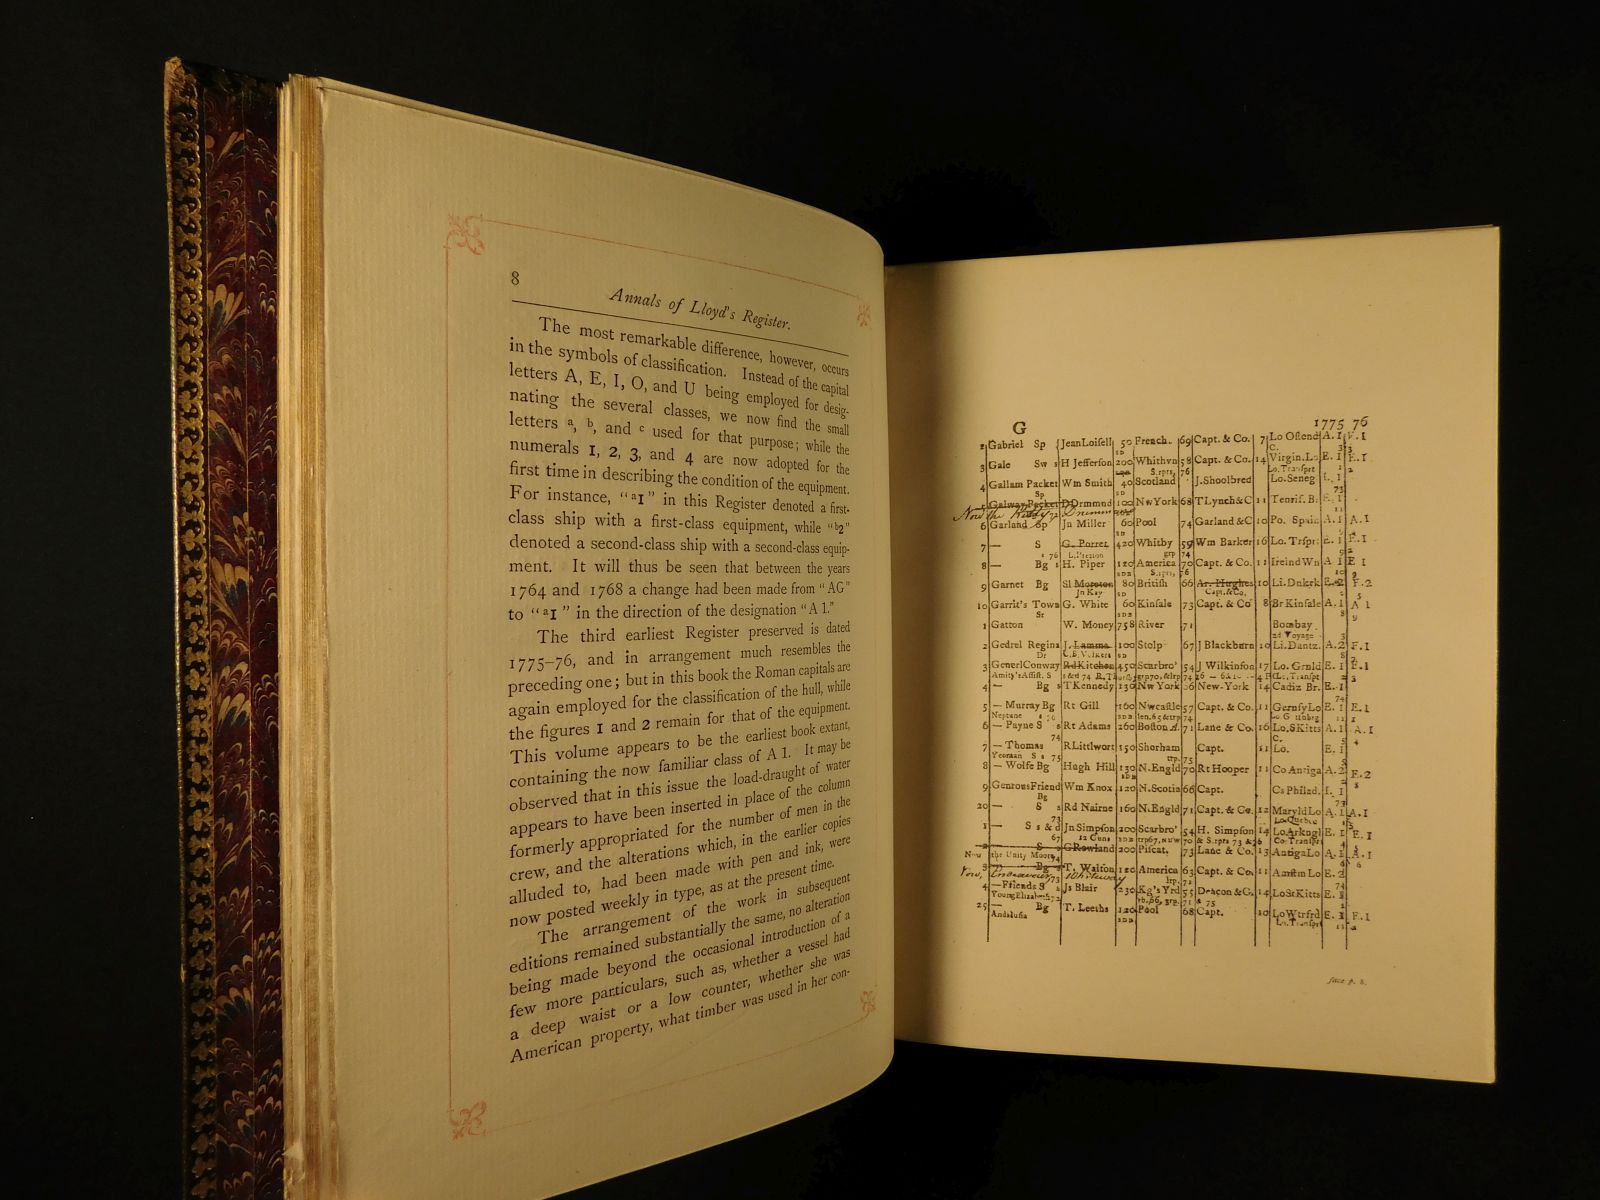 8
Annals of Lloyd's Register.
The most remarkable difference, however, occurs
in the symbols of classification. Instead of the capital
letters A, E, I, O, and U being employed for desig-
nating the several classes, we now find the small
letters a, b, and c used for that purpose; while the
numerals 1, 2, 3, and 4 are now adopted for the
first time in describing the condition of the equipment.
For instance, "a1" in this Register denoted a first-
class ship with a first-class equipment, while "b2"
denoted a second-class ship with a second-class equip-
ment. It will thus be seen that between the years
1764 and 1768 a change had been made from "AG"
to "a1" in the direction of the designation "A 1."
The third earliest Register preserved is dated
1775-76, and in arrangement much resembles the
preceding one; but in this book the Roman capitals are
again employed for the classification of the hull, while
the figures 1 and 2 remain for that of the equipment.
This volume appears to be the earliest book extant,
containing the now familiar class of A 1. It may be
observed that in this issue the load-draught of water
appears to have been inserted in place of the column
formerly appropriated for the number of men in the
crew, and the alterations which, in the earlier copies
alluded to, had been made with pen and ink, were
now posted weekly in type, as at the present time.
The arrangement of the work in subsequent
editions remained substantially the same, no alteration
being made beyond the occasional introduction of a
few more particulars, such as, whether a vessel had
a deep waist or a low counter, whether she was
American property, what timber was used in her con-
G 1775 76
Gabriel Sp Jean Loisell 50 French. 69 Capt. & Co. 7 Lo Ostend A. 1
3 Gale Sw s H Jefferson 200 Whithvn 58 Capt. & Co. 14 Virgin. Lo E. 1 E. 1
4 Gallam Packet Wm Smith 40 Scotland J. Shoolbred Lo. Seneg
Galway Packet D Drmmnd 100 NwYork 68 T Lynch & C 11 Tenrif. B.
Now the Kitty Drummond
6 Garland Sp Jn Miller 60 Pool 74 Garland & C 10 Po. Spain A. 1 A. 1
7 — S G. Porret 420 Whitby 59 Wm Barker 16 Lo. Trspt E. 1 E. 1
8 — Bg s H. Piper 120 America 70 Capt. & Co. 11 Ireind Wn A 1 E 1
9 Garnet Bg Sl Moreton 80 British 66 Ar. Hughes 10 Li. Dnkrk E. 2 F. 2
Jn Kay Capt. & Co.
10 Garrit's Town G. White 60 Kinsale 73 Capt. & Co 8 Br Kinsale A. 1 A 1
1 Gatton W. Money 758 River 71 Bombay
2d Voyage
2 Gedrel Regina J. Lamme 100 Stolp 67 J Blackburn 10 Li. Dantz. A. 2 F. 1
3 Generl Conway Rd Kitchen 450 Scarbro' 54 J Wilkinson 17 Lo. Grnld E. 1 E. 1
4 — Bg s T Kennedy 130 Nw York 66 New-York 14 Cadiz Br. E. 1
5 — Murray Bg Rt Gill 160 Nwcastle 57 Capt. & Co. 11 Gernsy Lo E. 1 E. 1
Neptune
6 — Payne S s Rt Adams 260 Boston A. 71 Lane & Co. 16 Lo. S Kitts A. 1 A. 1
7 — Thomas R Littlwort 150 Shorham Capt. 11 Lo. E. 1
8 — Wolfe Bg Hugh Hill 130 N. Engld 70 Rt Hooper 11 Co Antiga A. 2 F. 2
9 Genrous Friend Wm Knox 120 N. Scotia 66 Capt. Cs Philad. I. 1
Bg
20 — S s Rd Nairne 160 N. Engld 71 Capt. & Co. 12 Maryld Lo A. 1 A. 1
Lo Quebec
1 — S s & d Jn Simpson 200 Scarbro' 54 H. Simpson 14 Lo Arkngl E. 1 E. 1
2 — S G Rowland 200 Piscat. 73 Lane & Co. 13 Antiga Lo A. 1 A. 1
Now the Unity Moor
3 — Bg s T. Watson 120 America 63 Capt. & Co. 11 Amstm Lo E. 2
Now, Endeavour Whiteway
4 — Friends S Js Blair 230 Kg's Yrd 55 Deacon & G. 14 Lo St Kitts E. 1
Young Elizabeth
25 — Bg T. Leeths 120 Pool 68 Capt. 10 Lo Wtrfrd E. 1 F. 1
Andalusia
face p. 8.